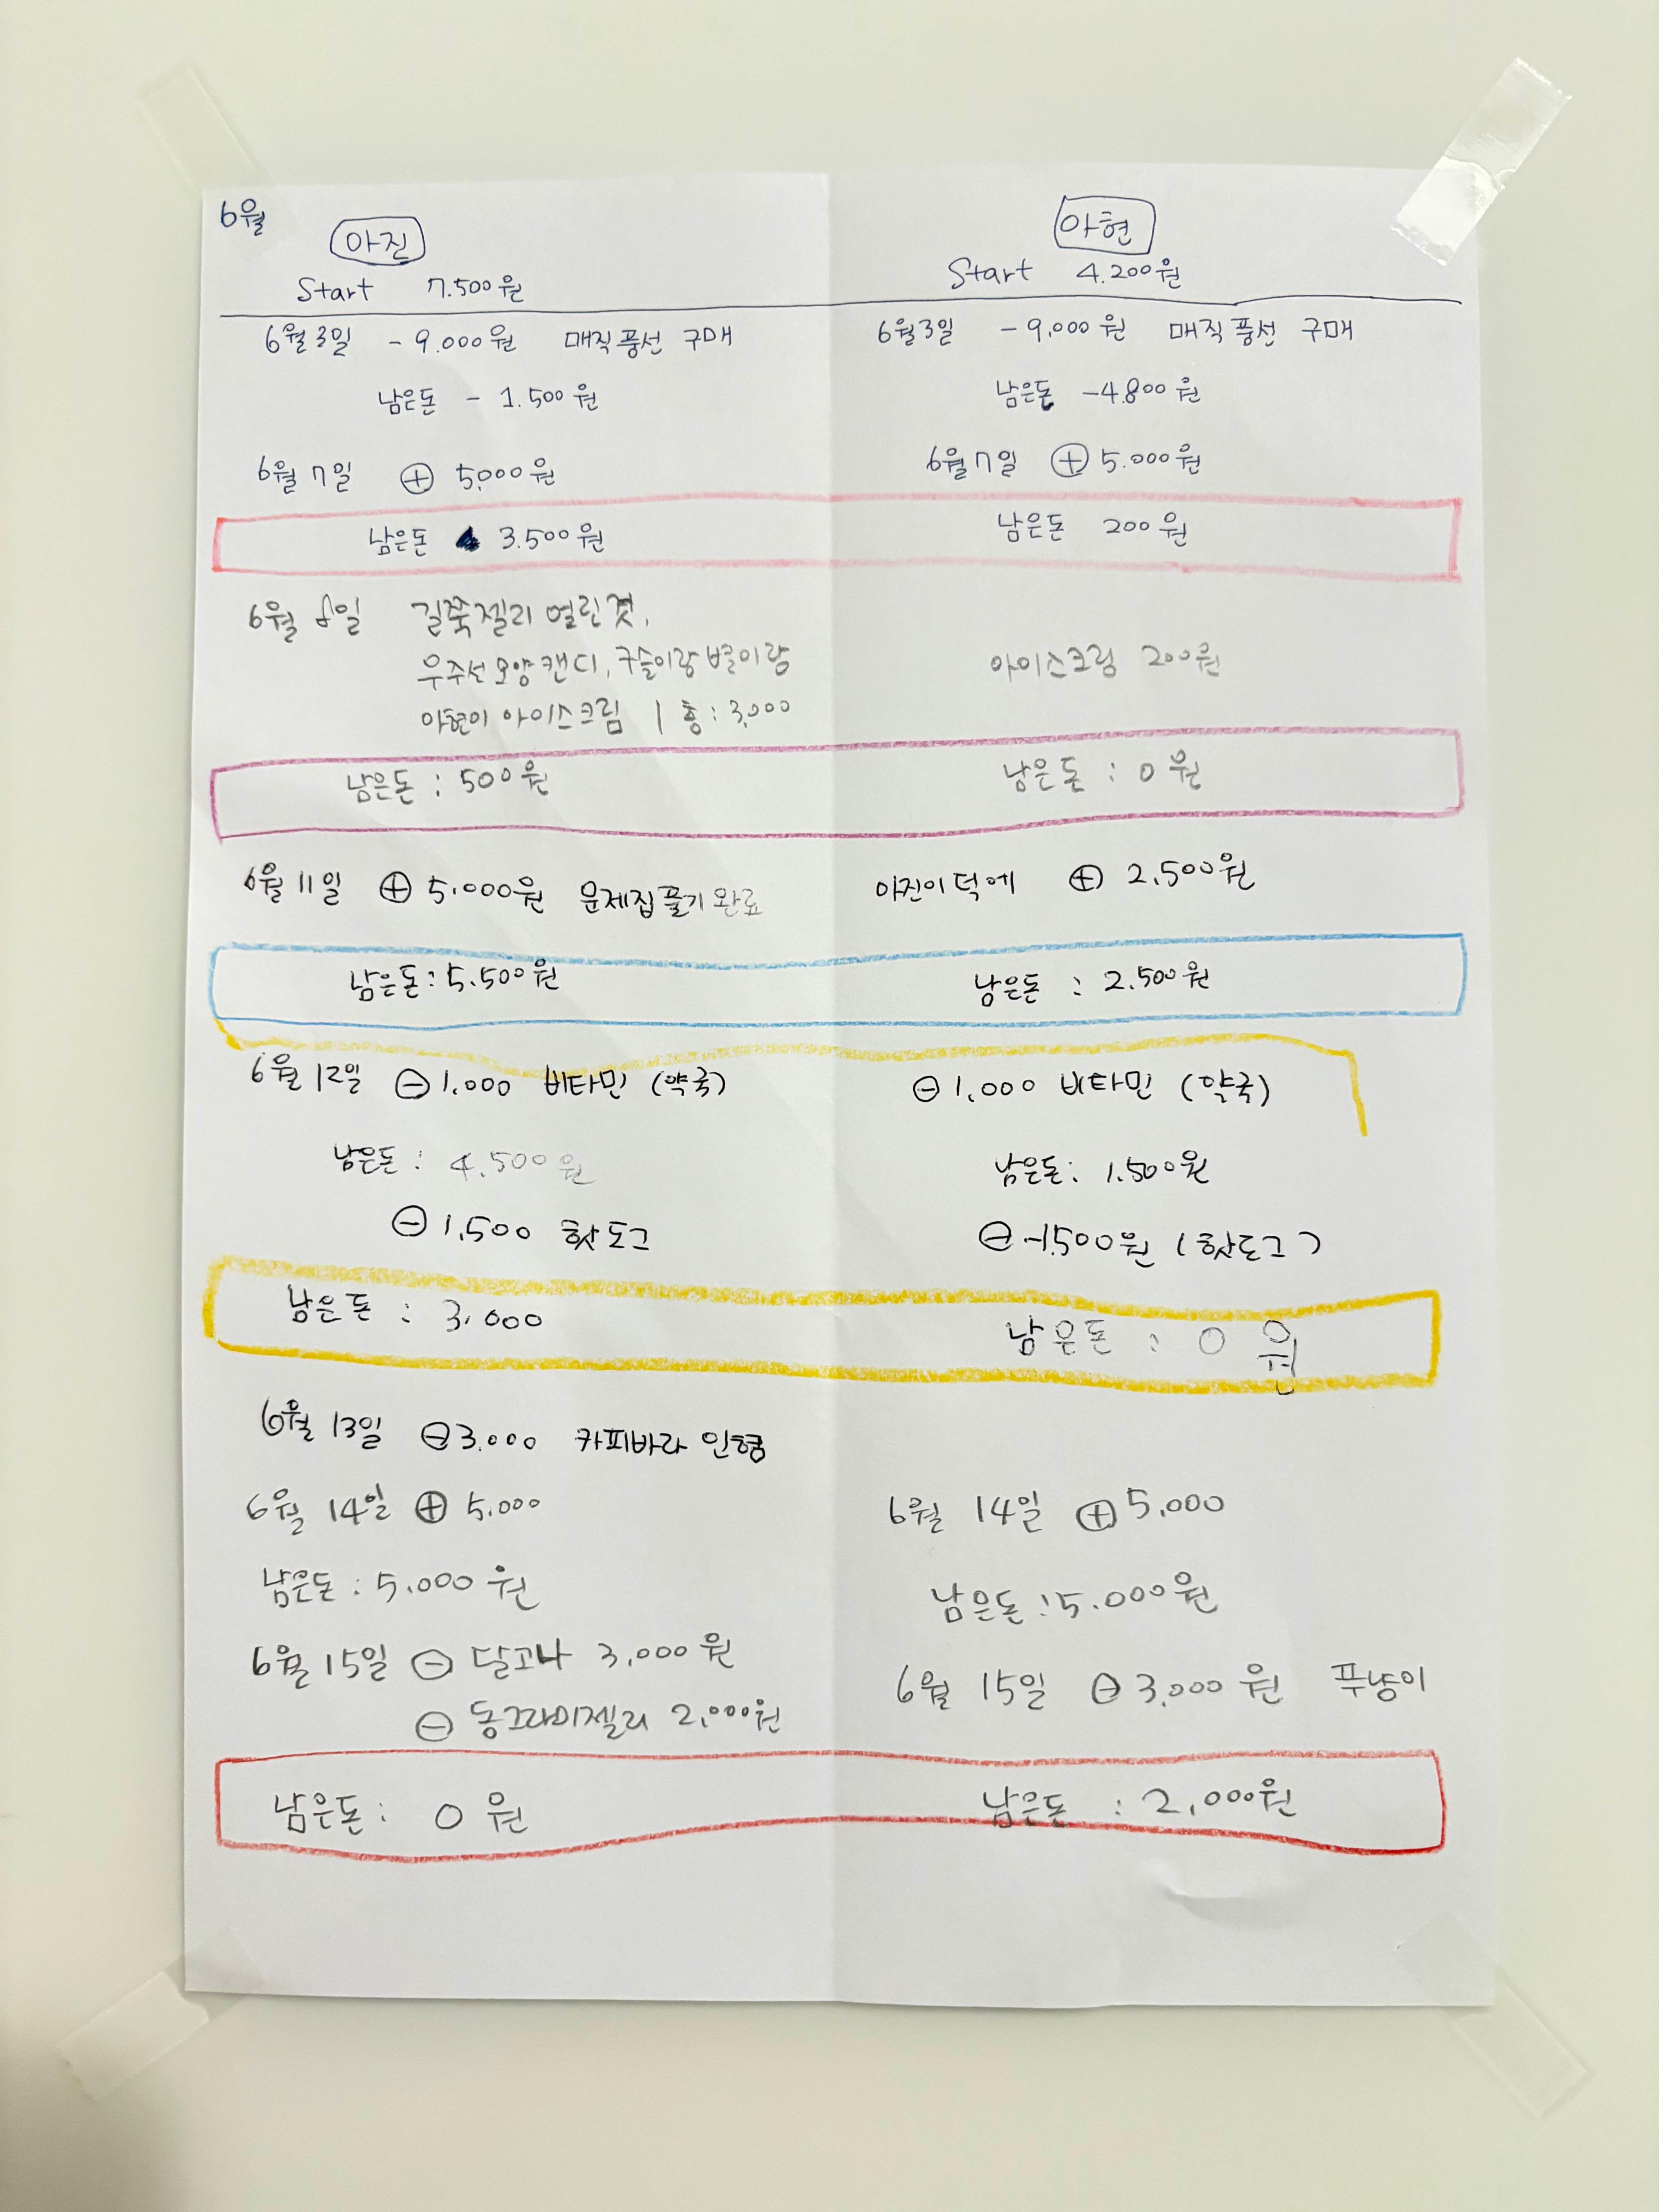 6월
아진
Start 7.500원
6월3일 - 9.000원 매직풍선 구매
남은돈 - 1.500원
6월 7일 ⊕ 5,000원
남은돈 3.500원
6월 8일 길쭉젤리 열린것,
우주선모양캔디, 구슬이랑별이랑
아현이 아이스크림 | 총 : 3,000
남은돈 : 500원
6월 11일 ⊕ 5.000원 문제집풀기완료
남은돈 : 5.500원
6월 12일 ⊖ 1.000 비타민 (약국)
남은돈 : 4.500원
⊖ 1,500 핫도그
남은돈 : 3,000
6월 13일 ⊖3.000 카피바라 인형
6월 14일 ⊕ 5.000
남은돈 : 5.000원
6월 15일 ⊖ 달고나 3,000원
⊖ 동그라미젤리 2,000원
남은돈 : 0원
아현
Start 4.200원
6월3일 - 9.000원 매직풍선 구매
남은돈 -4.800원
6월7일 ⊕ 5.000원
남은돈 200원
아이스크림 200원
남은돈 : 0원
아진이덕에 ⊕ 2,500원
남은돈 : 2.500원
⊖ 1.000 비타민 (약국)
남은돈: 1.500원
⊖ -1.500원 (핫도그)
남은돈 : 0원
6월 14일 ⊕ 5.000
남은돈 : 5.000원
6월 15일 ⊖ 3,000원 푸냥이
남은돈 : 2,000원